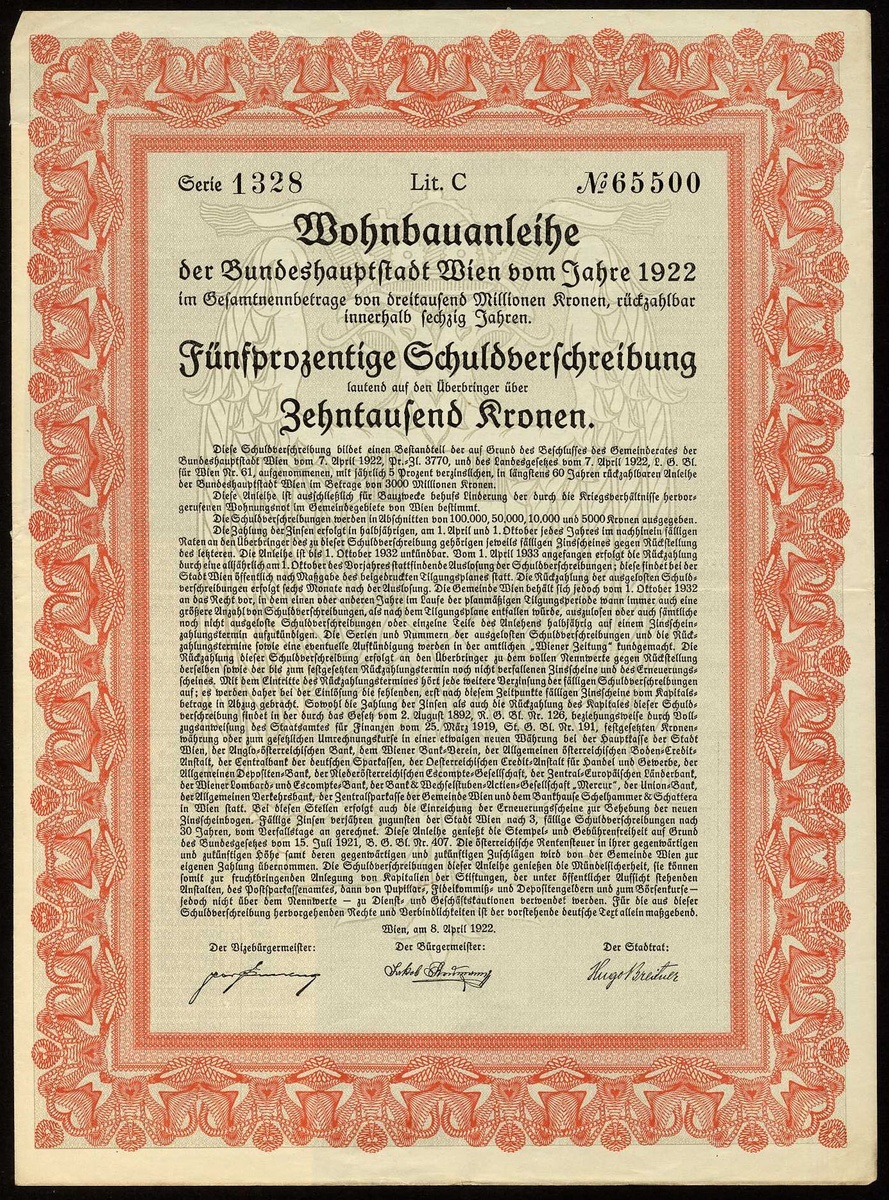 Serie 1328 Lit. C № 65500
Wohnbauanleihe
der Bundeshauptstadt Wien vom Jahre 1922
im Gesamtnennbetrage von dreitausend Millionen Kronen, rückzahlbar
innerhalb sechzig Jahren.
Fünfprozentige Schuldverschreibung
lautend auf den Überbringer über
Zehntausend Kronen.
Diese Schuldverschreibung bildet einen Bestandteil der auf Grund des Beschlusses des Gemeinderates der
Bundeshauptstadt Wien vom 7. April 1922, Pr.-Zl. 3770, und des Landesgesetzes vom 7. April 1922, L. G. Bl.
für Wien Nr. 61, aufgenommenen, mit jährlich 5 Prozent verzinslichen, in längstens 60 Jahren rückzahlbaren Anleihe
der Bundeshauptstadt Wien im Betrage von 3000 Millionen Kronen.
Diese Anleihe ist ausschließlich für Bauzwecke behufs Linderung der durch die Kriegsverhältnisse hervor-
gerufenen Wohnungsnot im Gemeindegebiete von Wien bestimmt.
Die Schuldverschreibungen werden in Abschnitten von 100,000, 50,000, 10,000 und 5000 Kronen ausgegeben.
Die Zahlung der Zinsen erfolgt in halbjährigen, am 1. April und 1. Oktober jedes Jahres im nachhinein fälligen
Raten an den Überbringer des zu dieser Schuldverschreibung gehörigen jeweils fälligen Zinsscheines gegen Rückstellung
des letzteren. Die Anleihe ist bis 1. Oktober 1932 unkündbar. Vom 1. April 1933 angefangen erfolgt die Rückzahlung
durch eine alljährlich am 1. Oktober des Vorjahres stattfindende Auslosung der Schuldverschreibungen; diese findet bei der
Stadt Wien öffentlich nach Maßgabe des beigedruckten Tilgungsplanes statt. Die Rückzahlung der ausgelosten Schuld-
verschreibungen erfolgt sechs Monate nach der Auslosung. Die Gemeinde Wien behält sich jedoch vom 1. Oktober 1932
an das Recht vor, in dem einen oder anderen Jahre im Laufe der planmäßigen Tilgungsperiode wann immer auch eine
größere Anzahl von Schuldverschreibungen, als nach dem Tilgungsplane entfallen würde, auszulosen oder auch sämtliche
noch nicht ausgeloste Schuldverschreibungen oder einzelne Teile des Anlehens halbjährig auf einem Zinsschein-
zahlungstermin aufzukündigen. Die Serien und Nummern der ausgelosten Schuldverschreibungen und die Rück-
zahlungstermine sowie eine eventuelle Aufkündigung werden in der amtlichen „Wiener Zeitung“ kundgemacht. Die
Rückzahlung dieser Schuldverschreibung erfolgt an den Überbringer zu dem vollen Nennwerte gegen Rückstellung
derselben sowie der bis zum festgesetzten Rückzahlungstermin noch nicht verfallenen Zinsscheine und des Erneuerungs-
scheines. Mit dem Eintritte des Rückzahlungstermines hört jede weitere Verzinsung der fälligen Schuldverschreibungen
auf; es werden daher bei der Einlösung die fehlenden, erst nach diesem Zeitpunkte fälligen Zinsscheine vom Kapitals-
betrage in Abzug gebracht. Sowohl die Zahlung der Zinsen als auch die Rückzahlung des Kapitales dieser Schuld-
verschreibung findet in der durch das Gesetz vom 2. August 1892, R. G. Bl. Nr. 126, beziehungsweise durch Voll-
zugsanweisung des Staatsamtes für Finanzen vom 25. März 1919, St. G. Bl. Nr. 191, festgesetzten Kronen-
währung oder zum gesetzlichen Umrechnungskurse in einer etwaigen neuen Währung bei der Hauptkasse der Stadt
Wien, der Anglo-österreichischen Bank, dem Wiener Bank-Verein, der Allgemeinen österreichischen Boden-Credit-
Anstalt, der Centralbank der deutschen Sparkassen, der Oesterreichischen Credit-Anstalt für Handel und Gewerbe, der
Allgemeinen Depositen-Bank, der Niederösterreichischen Escompte-Gesellschaft, der Zentral-Europäischen Länderbank,
der Wiener Lombard- und Escompte-Bank, der Bank & Wechselstuben-Actien-Gesellschaft „Mercur“, der Union-Bank,
der Allgemeinen Verkehrsbank, der Zentralsparkasse der Gemeinde Wien und dem Bankhause Schelhammer & Schattera
in Wien statt. Bei diesen Stellen erfolgt auch die Einreichung der Erneuerungsscheine zur Behebung der neuen
Zinsscheinbogen. Fällige Zinsen verjähren zugunsten der Stadt Wien nach 3, fällige Schuldverschreibungen nach
30 Jahren, vom Verfallstage an gerechnet. Diese Anleihe genießt die Stempel- und Gebührenfreiheit auf Grund
des Bundesgesetzes vom 15. Juli 1921, B. G. Bl. Nr. 407. Die österreichische Rentensteuer in ihrer gegenwärtigen
und zukünftigen Höhe samt deren gegenwärtigen und zukünftigen Zuschlägen wird von der Gemeinde Wien zur
eigenen Zahlung übernommen. Die Schuldverschreibungen dieser Anleihe genießen die Mündelsicherheit, sie können
somit zur fruchtbringenden Anlegung von Kapitalien der Stiftungen, der unter öffentlicher Aufsicht stehenden
Anstalten, des Postsparkassenamtes, dann von Pupillar-, Fideikommiß- und Depositengeldern und zum Börsenkurse —
jedoch nicht über dem Nennwerte — zu Dienst- und Geschäftskautionen verwendet werden. Für die aus dieser
Schuldverschreibung hervorgehenden Rechte und Verbindlichkeiten ist der vorstehende deutsche Text allein maßgebend.
Wien, am 8. April 1922.
Der Vizebürgermeister: Der Bürgermeister: Der Stadtrat:
Jakob Reumann Hugo Breitner